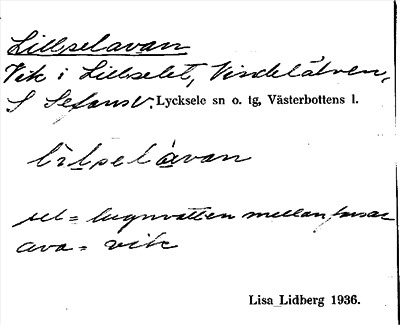 Lillselavan
Vik i Lillselet, Vindelälven,
S Lycksele sn o. tg, Västerbottens l.
sel = lugnvatten mellan forsar
ava = vik
Lisa Lidberg 1936.